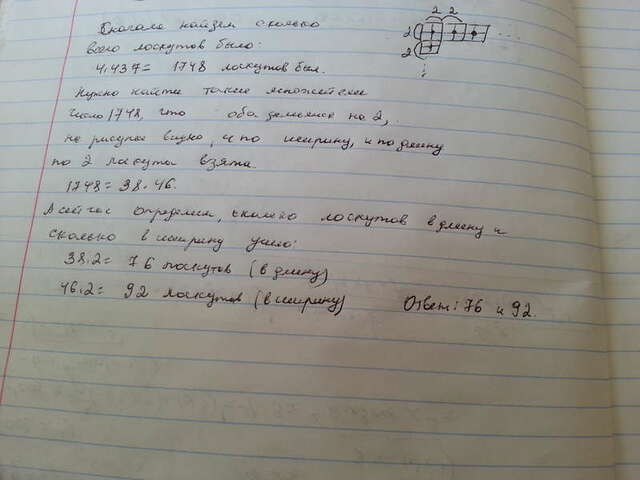 Сначала найдем сколько
всего лоскутов было:
4·437= 1748 лоскутов был.
Нужно найти такие
число 1748, что оба делился на 2,
на рисунке видно, и по ширину, и по длину
по 2 лоскуты взята
1748 = 38·46.
А сейчас определим, сколько лоскутов в длину и
сколько в ширину ушло:
38·2= 76 лоскутов (в длину)
46·2= 92 лоскутов (в ширину) Ответ: 76 и 92.
2 2
2
2